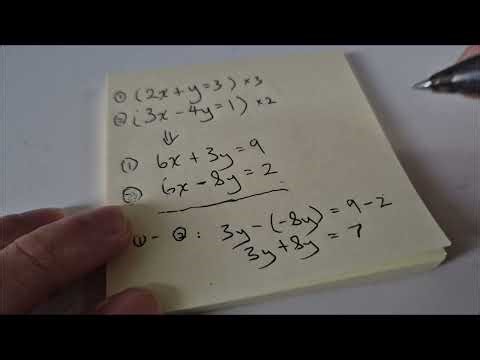 ① (2x + y = 3) × 3
② (3x - 4y = 1) × 2
⇓
① 6x + 3y = 9
② 6x - 8y = 2
① - ② : 3y - (-8y) = 9 - 2
3y + 8y = 7